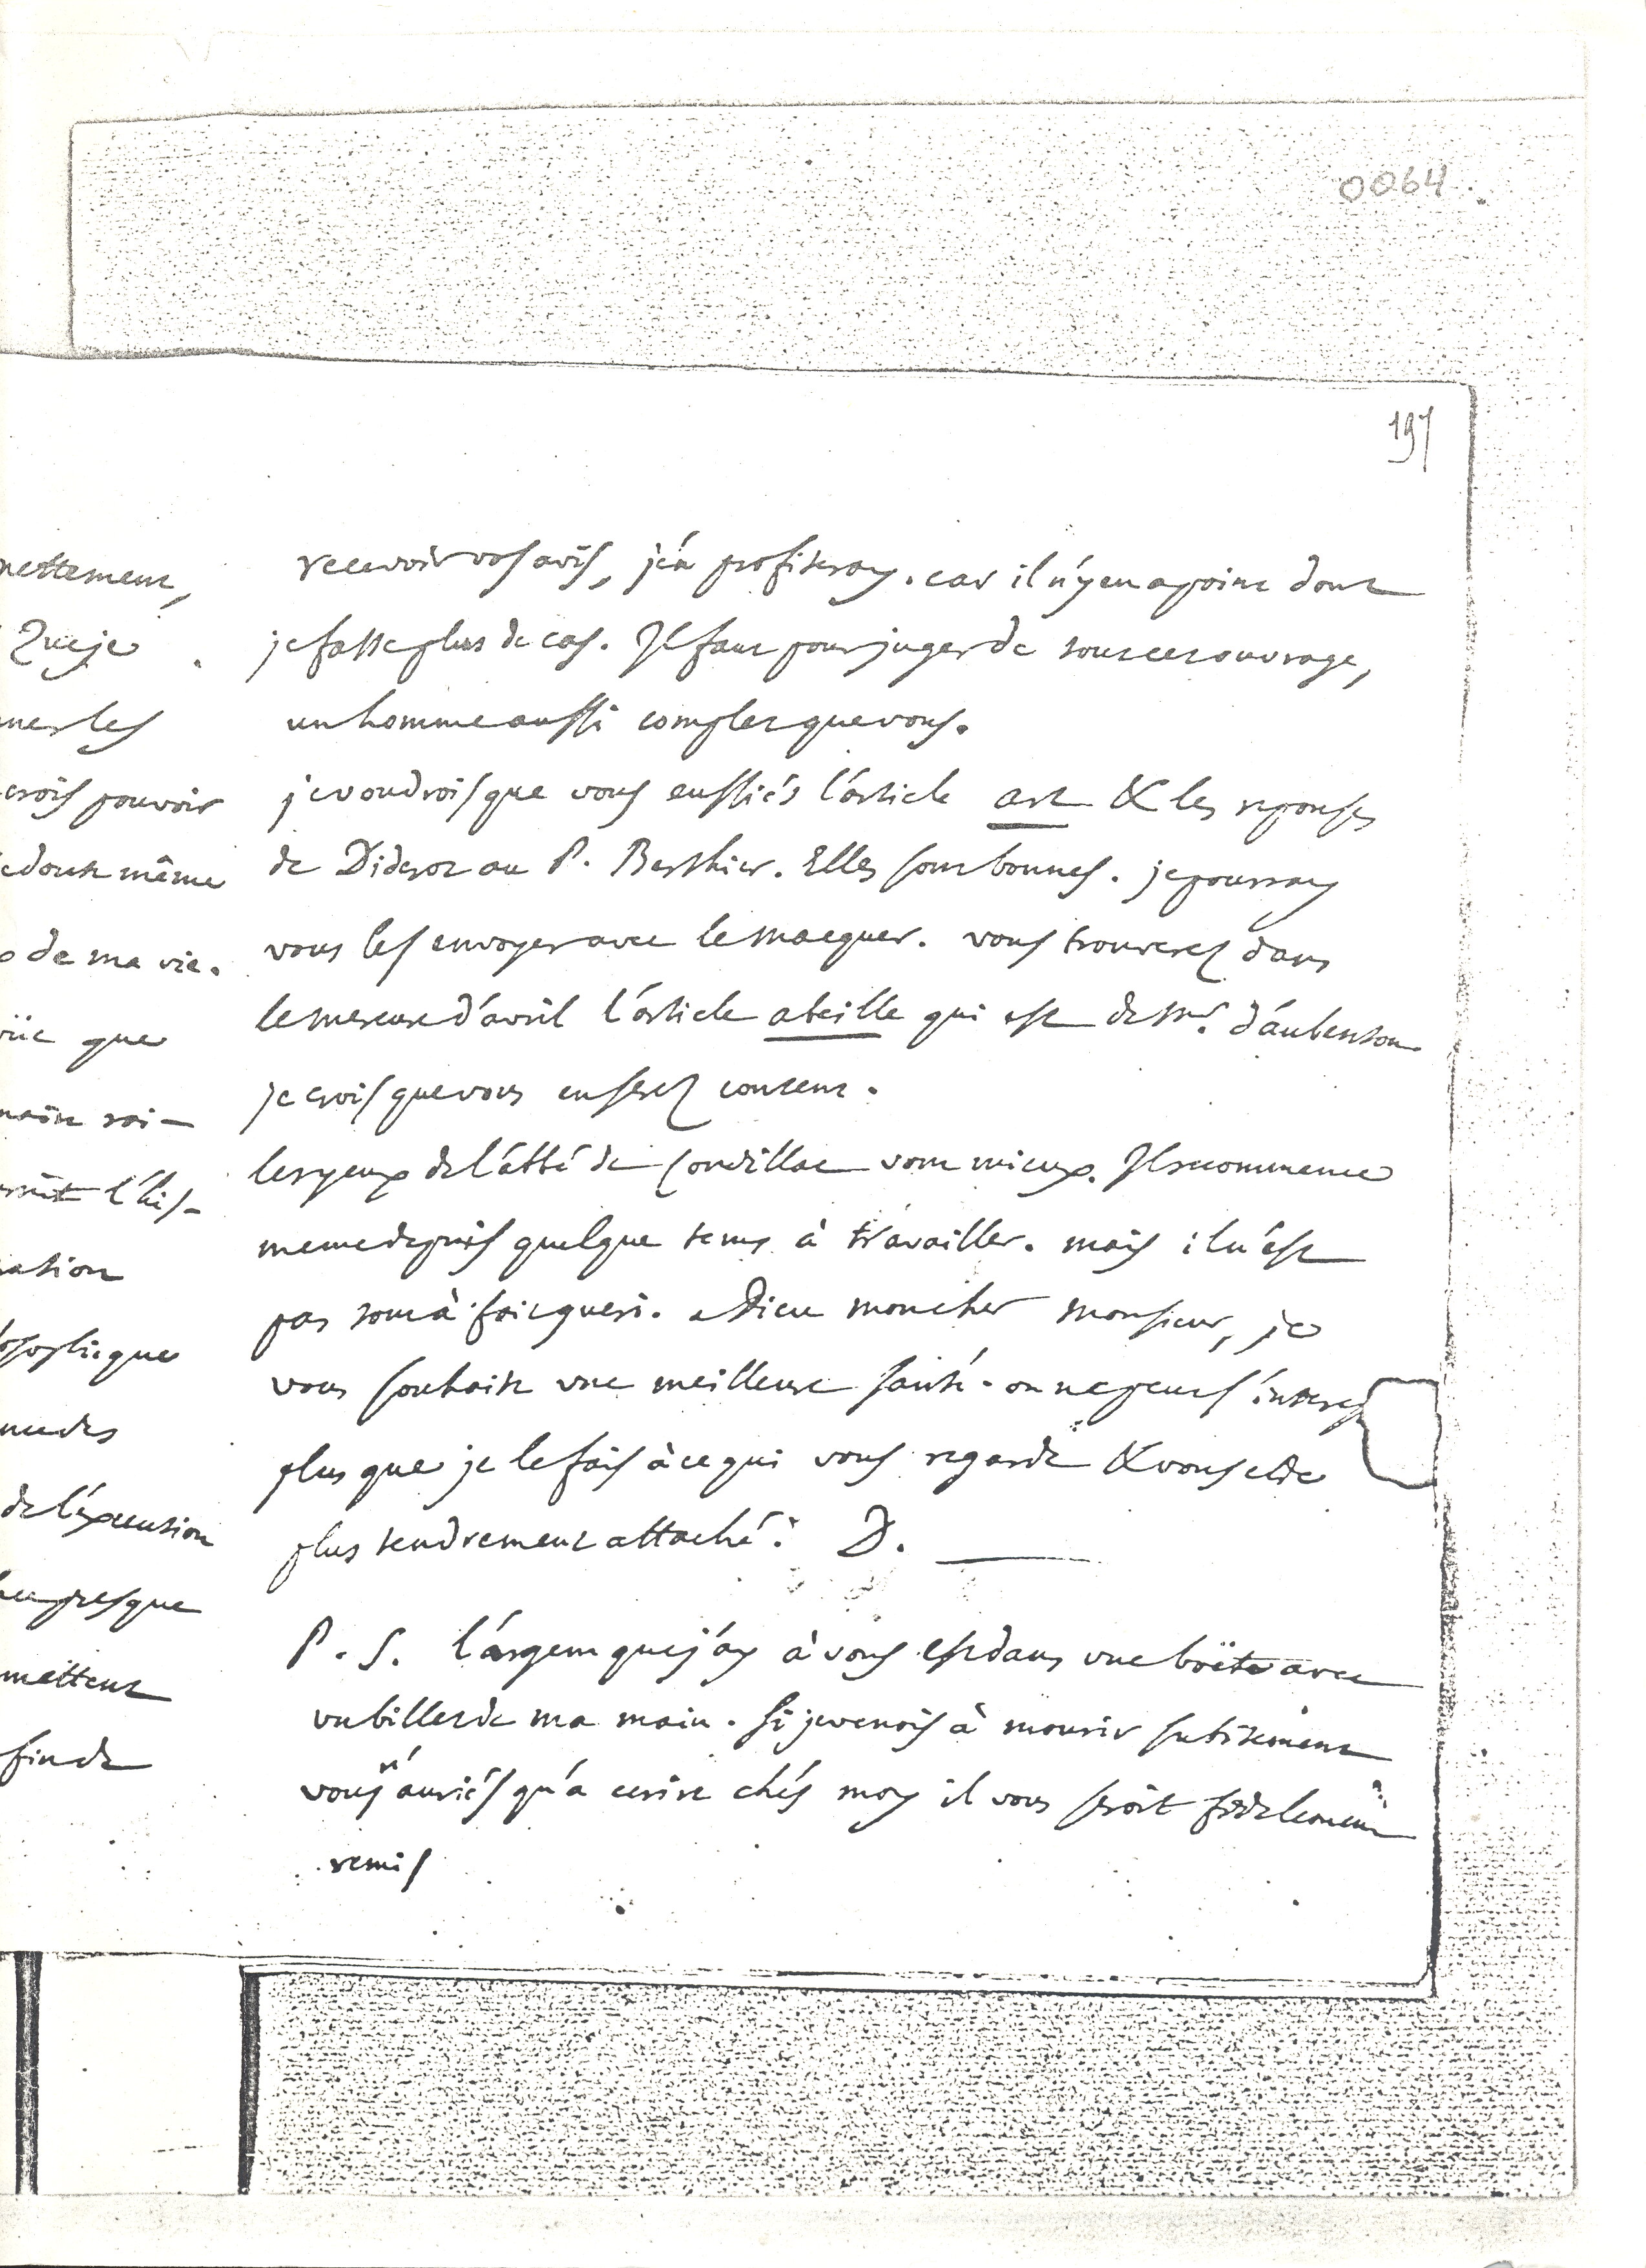 0064
197
recevoir vos avis, j'en profiteray. car il n'y en a point dont
je fasse plus de cas. Il faut pour juger de tout cet ouvrage,
un homme aussi complet que vous.
je voudrois que vous eussiés l'article art & les reponses
de Diderot au P. Berthier. Elles sont bonnes. je pourray
vous les envoyer avec le macquer. vous trouverez dans
le mercure d'avril l'article abeille qui est de Mr. d'aubenton
je crois que vous en serez content.
les yeux de l'abbé de Condillac vont mieux. Il recommence
meme depuis quelque tems à travailler. mais il n'est
pas tout à fait gueri. adieu mon cher Monsieur, je
vous souhaite une meilleure santé. on ne peut s'interes
plus que je le fais à ce qui vous regarde & vous etre
plus tendrement attaché. D.
P. S. l'argent que j'ay à vous est dans une boëte avec
un billet de ma main. si je venois à mourir subitement
vous n'auriés qu'a ecrire chés moy il vous seroit fidelement
remis
nettement,
Que je
ner les
crois pouvoir
doute même
de ma vie.
que
rai-
l'his-
ation
osophique
de l'execution
presque
mettent
fin de